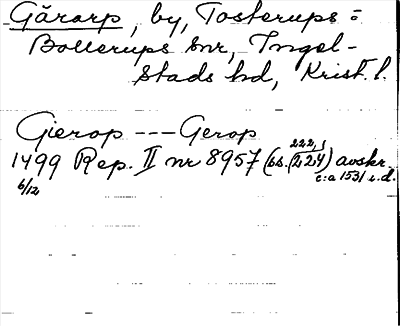 Gårarp, by, Tosterups =
Bollerups snr, Ingel-
stads hd, Krist. l.
Gierop --- Gerop
222,
1499 Rep. II nr 8957 (bs. (224) avskr.
6/12 c:a 1531 i.d.